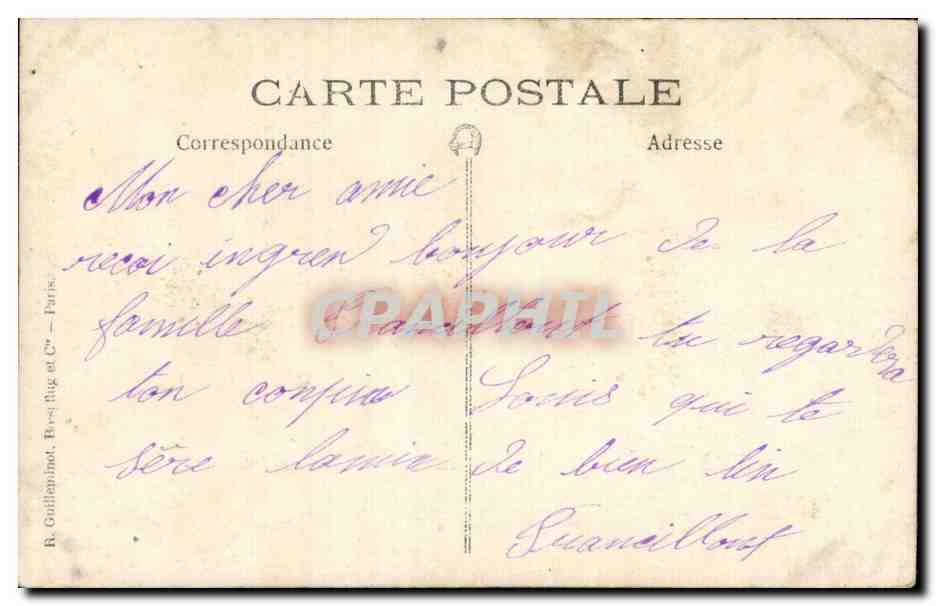 CARTE POSTALE
Correspondance
Adresse
Mon cher amie
recoi ingren bonjour de la
famille tu regardera
ton conpia Louis qui te
sère lamin de bien lin
R. Guilleminot, Bœspflug et Cie — Paris.
CPAPHIL